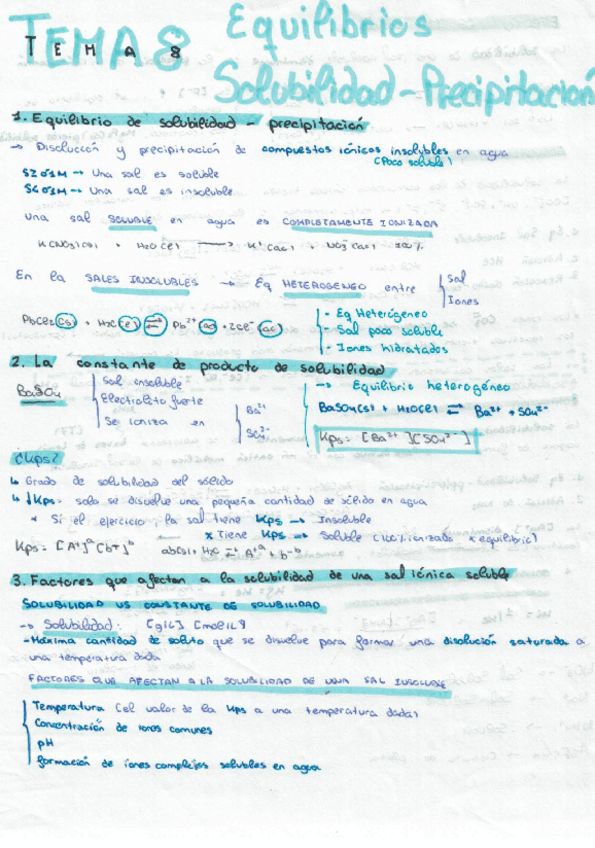 TEMA 8 Equilibrios
TEMA 8
Solubilidad - Precipitación
1. Equilibrio de solubilidad - precipitación
→ Disolución y precipitación de compuestos iónicos insolubles en agua
(Poco soluble)
S≥0'1M → Una sal es soluble
S≤0'1M → Una sal es insoluble
Una sal SOLUBLE en agua es COMPLETAMENTE IONIZADA
KCNO3(s) + H2O(l) → K+(ac) + NO3-(ac) 100%
En la SALES INSOLUBLES → Eq HETEROGENEO entre
Sal
Iones
PbCl2(s) + H2O(l) ⇌ Pb2+(ac) + 2Cl-(ac)
- Eq Heterógeneo
- Sal poco soluble
- Iones hidratados
2. La constante de producto de solubilidad
BaSO4
Sal insoluble
Electrolito fuerte
Se ioniza en
Ba2+
SO42-
→ Equilibrio heterogéneo
BaSO4(s) + H2O(l) ⇌ Ba2+ + SO42-
Kps = [Ba2+][SO42-]
¿Kps?
↳ Grado de solubilidad del sólido
↳ ↓Kps = solo se disuelve una pequeña cantidad de sólido en agua
* Si el ejercicio la sal tiene Kps → Insoluble
x Tiene Kps → Soluble (100% ionizada x equilibrio)
Kps = [A+]a [b+]b ab(s) + H2O ⇌ A+a + b-b
3. Factores que afectan a la solubilidad de una sal iónica soluble
SOLUBILIDAD VS CONSTANTE DE SOLUBILIDAD
→ Solubilidad: [g/L] [mol/L]
- Máxima cantidad de soluto que se disuelve para formar una disolución saturada a
una temperatura dada
FACTORES QUE AFECTAN A LA SOLUBILIDAD DE UNA SAL INSOLUBLE
Temperatura (el valor de la Kps a una temperatura dada)
Concentración de iones comunes
pH
formación de iones complejos solubles en agua